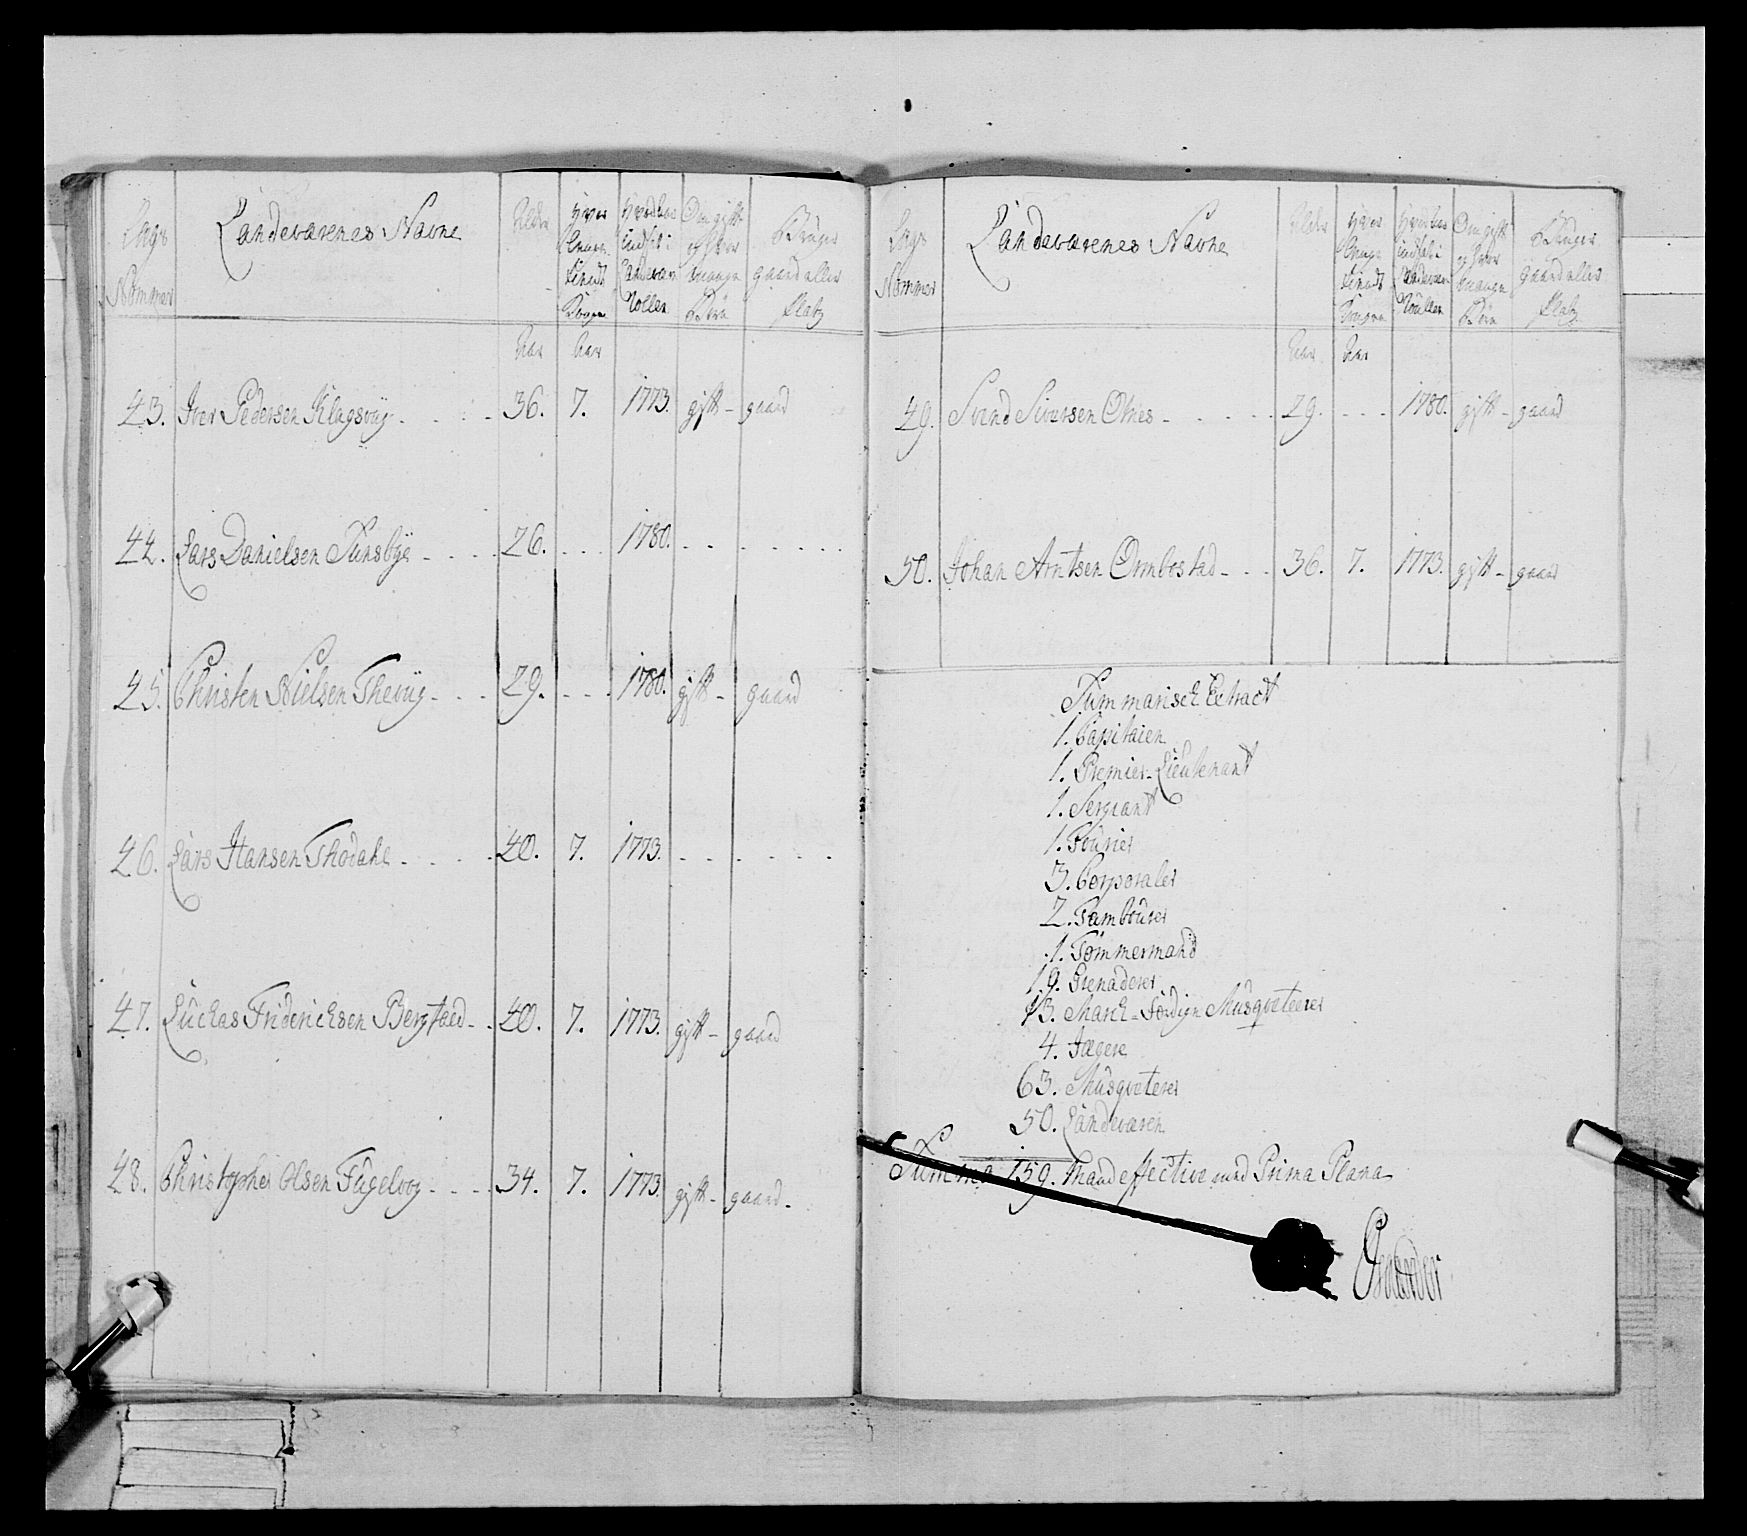 Lags Nommer
Landeværenes Navne
Alder
Hvor lenge tient Kongen
Hvad Aar indsat i Landeværn Rollen
Om gift og hvor mange Børn
Bruger gaard eller Platz
Aar Aar
43. Iver Pedersen Klagsvig 36. 7. 1773. gift gaard
44. Lars Danielsen Tunsbye 26. 1780.
45. Christen Nielsen Thevig 29. 1780. gift gaard
46. Lars Hansen Thodahl 40. 7. 1773.
47. Luckas Friderichsen Bergstad 40. 7. 1773. gift gaard
48. Christopher Olsen Fugelvog 34. 7. 1773. gift gaard
Lags Nommer
Landeværenes Navne
Alder
Hvor lenge tient Kongen
Hvad Aar indsat i Landeværn Roullen
Om gift og hvor mange Børn
Bruger gaard eller Platz
Aar Aar
49. Svend Siversen Otnes 29. 1780. gift gaard
50. Johan Arntsen Ormbostad 36. 7. 1773. gift gaard
Summarisch Extract
1. Capitaien
1. Premier-Lieutenant
1. Sergiant
1. Fourier
3. Corporaler
2. Tambourer
1. Tømmermand
19. Grenaderer
13. March-Færdige Musqveteerer
4. Jægere
63. Musqveterer
50. Landeværen
Summa 159. Mand effective med Prima Plana